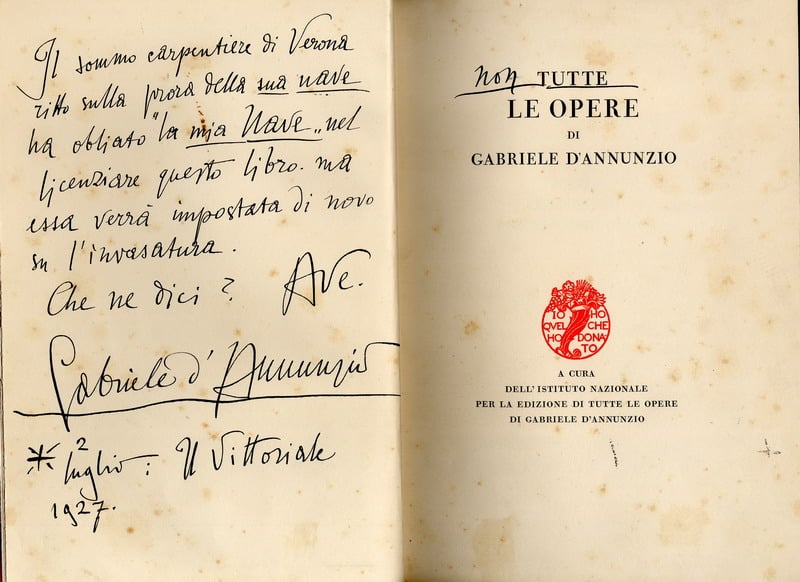 Il sommo carpentiere di Verona
ritto sulla prora della sua nave
ha obliato "la mia Nave„ nel
licenziare questo libro. ma
essa verrà impostata di novo
su l'invasatura.
Che ne dici? Ave.
Gabriele d'Annunzio
2
luglio: Il Vittoriale
1927.
non TUTTE
LE OPERE
DI
GABRIELE D'ANNUNZIO
IO HO
QUEL CHE
HO DONA
TO
A CURA
DELL'ISTITUTO NAZIONALE
PER LA EDIZIONE DI TUTTE LE OPERE
DI GABRIELE D'ANNUNZIO